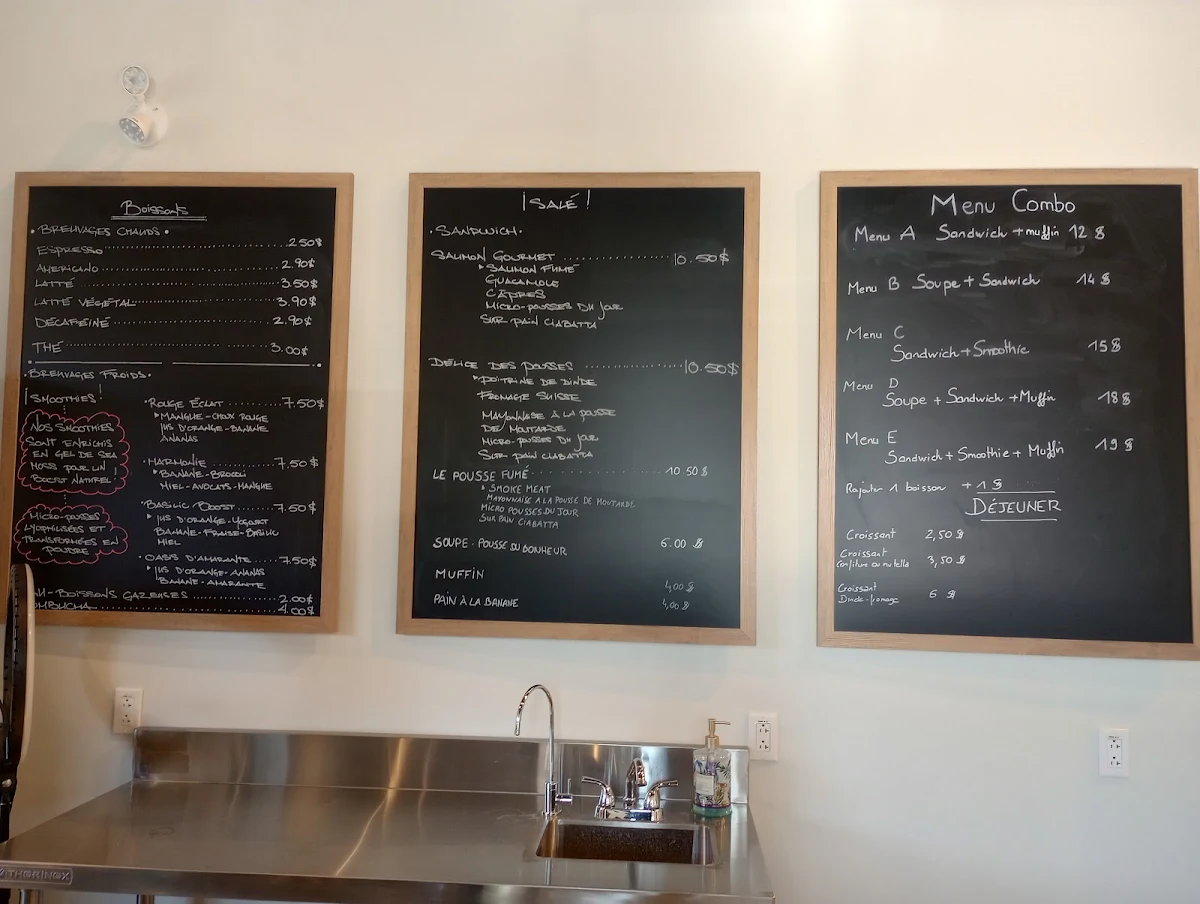 Boissons
• BREUVAGES CHAUDS •
ESPRESSO 2.50$
AMERICANO 2.90$
LATTÉ 3.50$
LATTÉ VÉGÉTAL 3.90$
DÉCAFÉINÉ 2.90$
THÉ 3.00$
• BREUVAGES FROIDS •
¡SMOOTHIES!
NOS SMOOTHIES
SONT ENRICHIS
EN GEL DE SEA
MOSS POUR UN
BOOST NATUREL!
MICRO-POUSSES
LYOPHILISÉES ET
TRANSFORMÉES EN
POUDRE
• ROUGE ÉCLAT 7.50$
MANGUE-CHOUX ROUGE
JUS D'ORANGE-BANANE
ANANAS
• HARMONIE 7.50$
BANANE-BROCOLI
MIEL-AVOCATS-MANGUE
• BASILIC BOOST 7.50$
JUS D'ORANGE-YOGOURT
BANANE-FRAISE-BASILIC
MIEL
• OASIS D'AMARANTE 7.50$
JUS D'ORANGE-ANANAS
BANANE-AMARANTE
BOISSONS GAZEUSES 2.00$
OMBUCHA 4.00$
¡SALÉ!
• SANDWICH •
SAUMON GOURMET 10.50$
SAUMON FUMÉ
GUACAMOLE
CÂPRES
MICRO-POUSSES DU JOUR
SUR PAIN CIABATTA
DÉLICE DES POUSSES 10.50$
POITRINE DE DINDE
FROMAGE SUISSE
MAYONNAISE À LA POUSSE
DE MOUTARDE
MICRO-POUSSES DU JOUR
SUR PAIN CIABATTA
LE POUSSE FUMÉ 10.50 $
SMOKE MEAT
MAYONNAISE A LA POUSSE DE MOUTARDE
MICRO POUSSES DU JOUR
SUR PAIN CIABATTA
SOUPE - POUSSE DU BONHEUR 6.00 $
MUFFIN 4,00 $
PAIN À LA BANANE 4,00 $
Menu Combo
Menu A Sandwich + muffin 12 $
Menu B Soupe + Sandwich 14 $
Menu C
Sandwich + Smoothie 15 $
Menu D
Soupe + Sandwich + Muffin 18 $
Menu E
Sandwich + Smoothie + Muffin 19 $
Rajouter 1 boisson + 1 $
DÉJEUNER
Croissant 2,50 $
Croissant
Confiture ou nutella 3,50 $
Croissant
Dinde-fromage 6 $
THORINOX